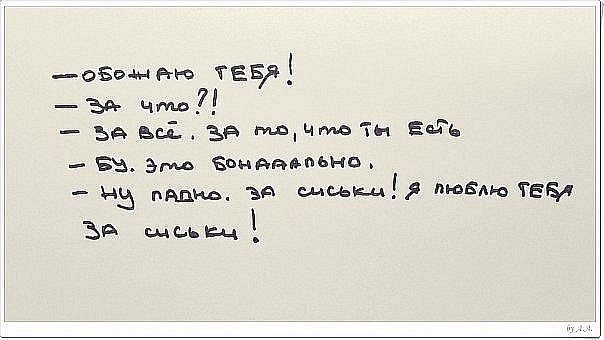 — ОБОЖАЮ ТЕБЯ!
— ЗА ЧТО?!
— ЗА ВСЁ. ЗА ТО, ЧТО ТЫ ЕСТЬ
— БУ. ЭТО БОНАААЛЬНО.
— НУ ЛАДНО. ЗА СИСЬКИ! Я ЛЮБЛЮ ТЕБЯ
ЗА СИСЬКИ!
by A.A.